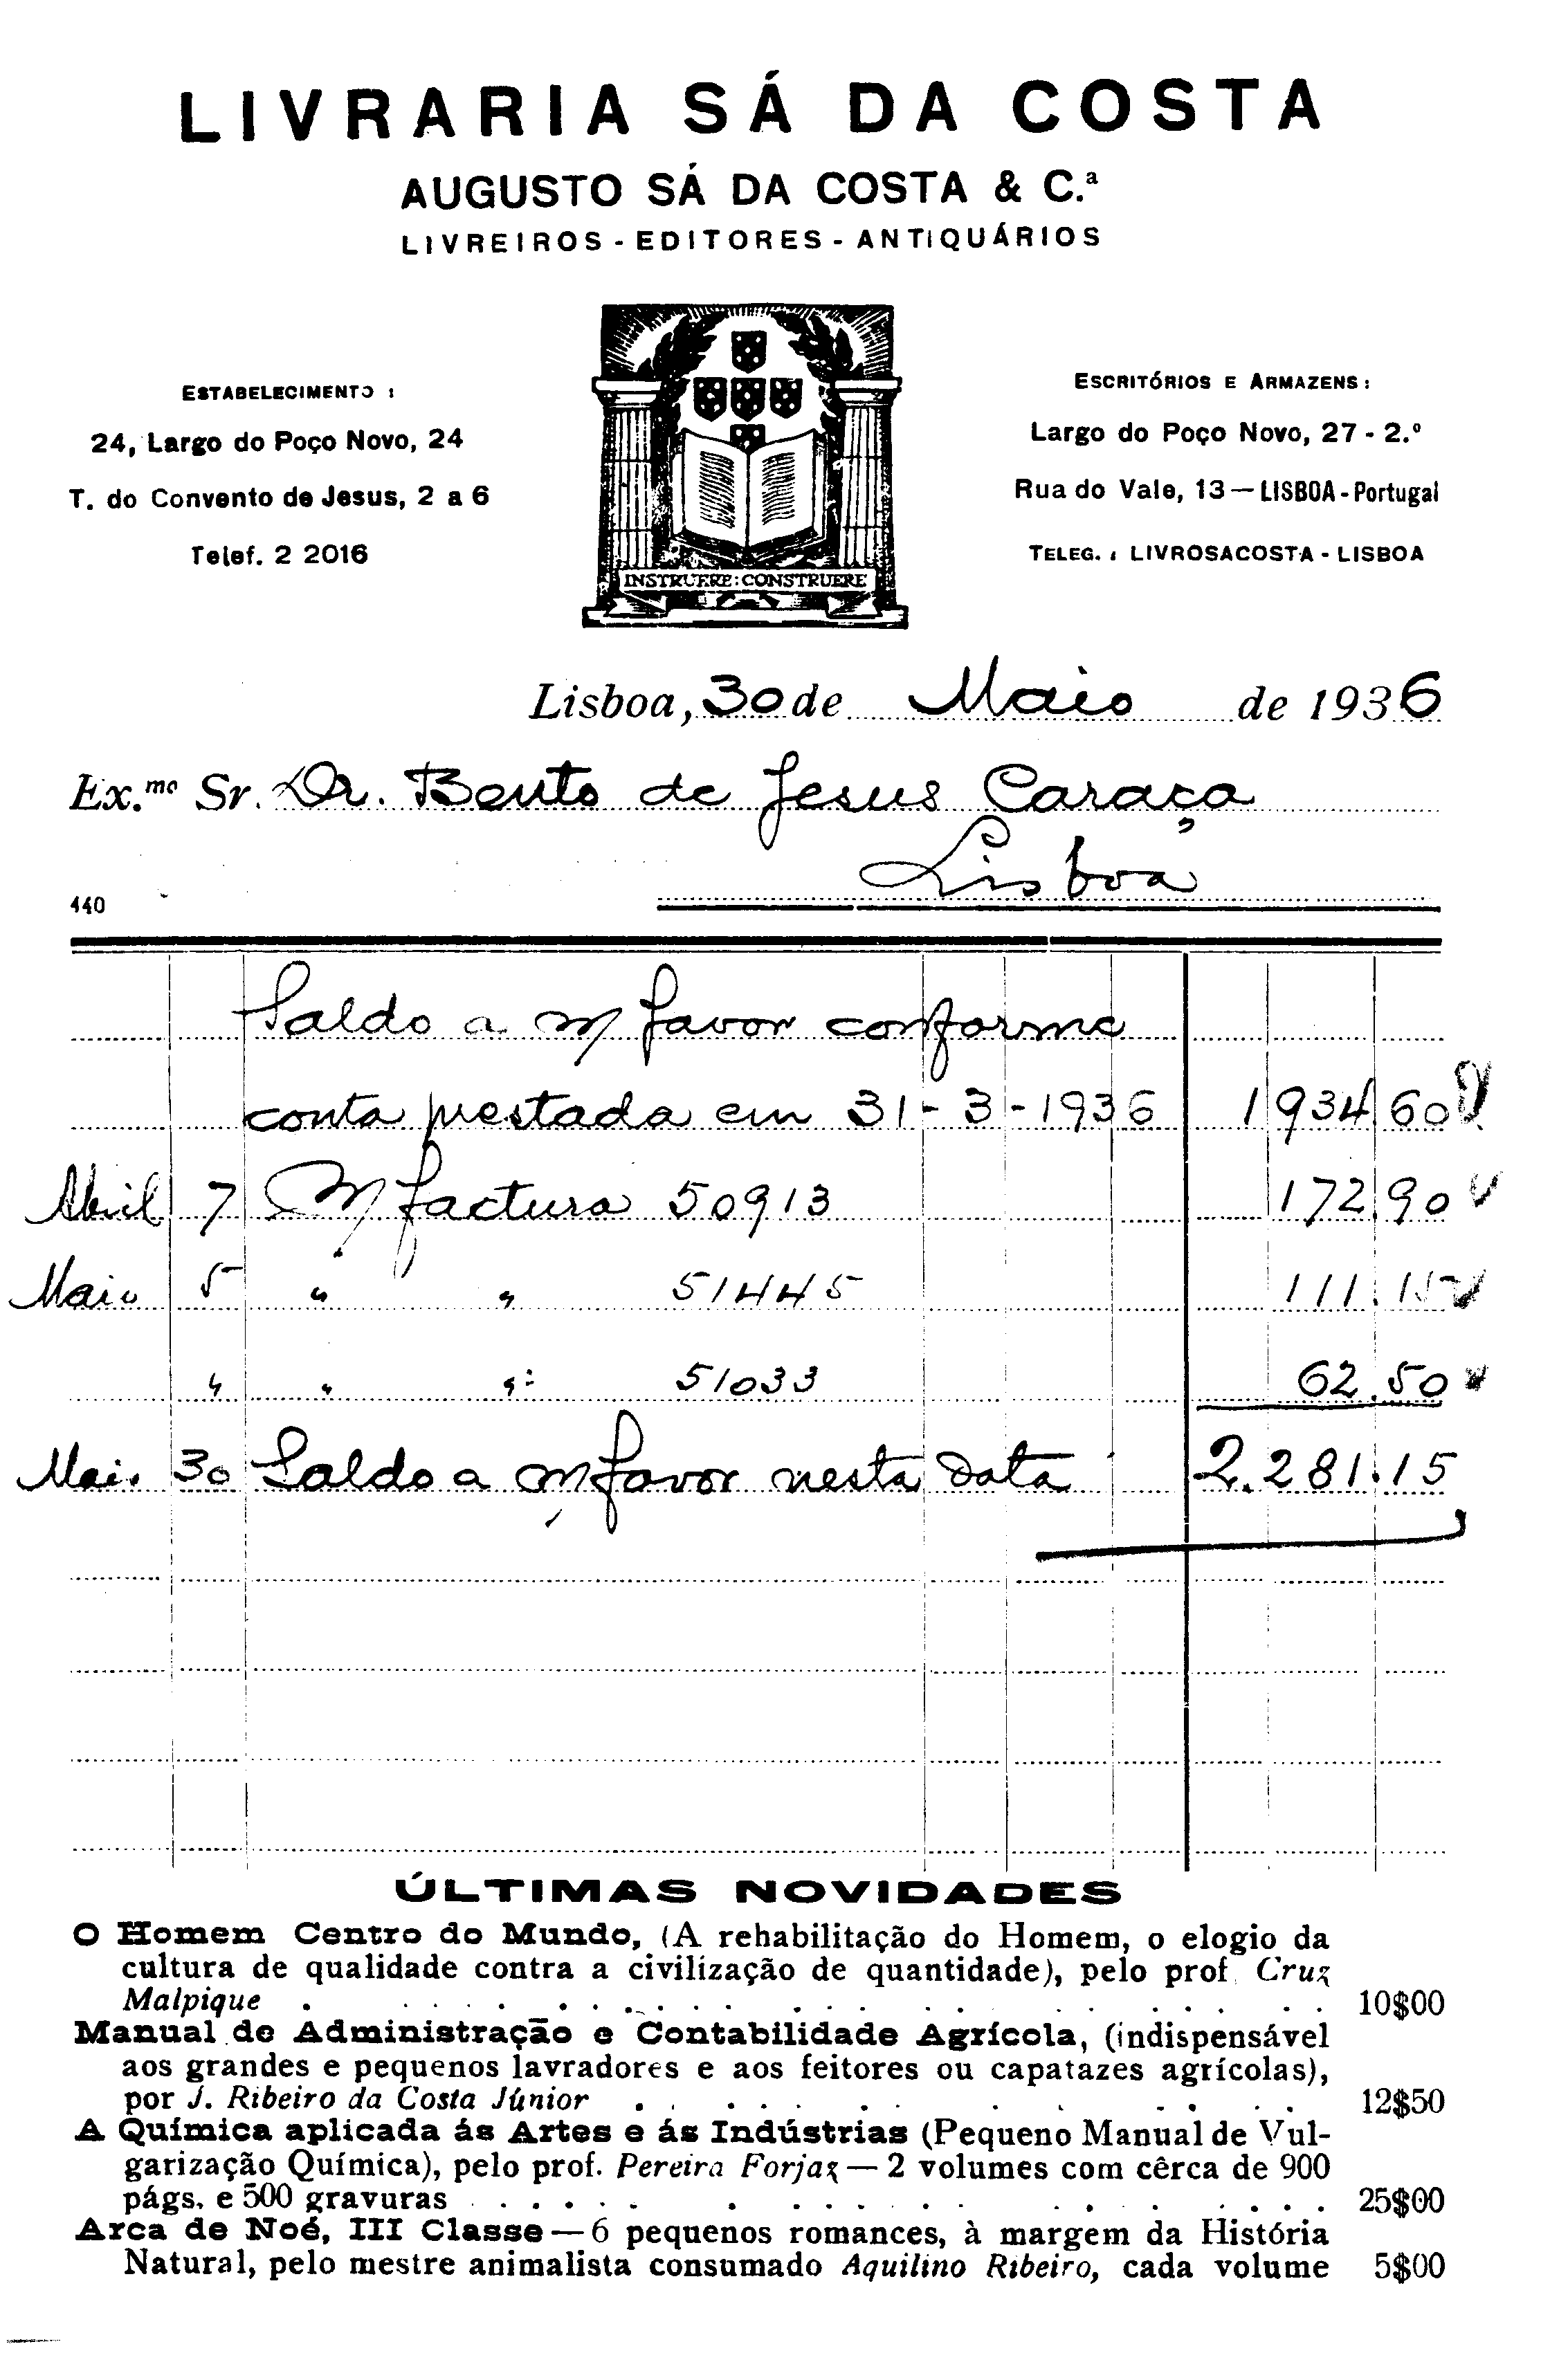 LIVRARIA SÁ DA COSTA
AUGUSTO SÁ DA COSTA & C.ª
LIVREIROS - EDITORES - ANTIQUÁRIOS
ESTABELECIMENTO :
24, Largo do Poço Novo, 24
T. do Convento de Jesus, 2 a 6
Telef. 2 2016
INSTRUERE : CONSTRUERE
ESCRITÓRIOS E ARMAZENS :
Largo do Poço Novo, 27 - 2.º
Rua do Vale, 13 — LISBOA - Portugal
TELEG. : LIVROSACOSTA - LISBOA
Lisboa, 30 de Maio de 1936
Ex.mo Sr. Dr. Bento de Jesus Caraça
Lisboa
440
Saldo a m/ favor conforme
conta prestada em 31-3-1936 1934.60
Abril 7 M/ factura 50913 172.90
Maio 5 " " 51445 111.15
" " " 51033 62.50
Maio 30 Saldo a m/ favor nesta data 2.281.15
ÚLTIMAS NOVIDADES
O Homem Centro do Mundo, (A rehabilitação do Homem, o elogio da
cultura de qualidade contra a civilização de quantidade), pelo prof. Cruz
Malpique . . . . . . . . . . 10$00
Manual de Administração e Contabilidade Agrícola, (indispensável
aos grandes e pequenos lavradores e aos feitores ou capatazes agrícolas),
por J. Ribeiro da Costa Júnior . . . . . . . 12$50
A Química aplicada ás Artes e ás Indústrias (Pequeno Manual de Vul-
garização Química), pelo prof. Pereira Forjaz — 2 volumes com cêrca de 900
págs. e 500 gravuras . . . . . . . . . 25$00
Arca de Noé, III Classe — 6 pequenos romances, à margem da História
Natural, pelo mestre animalista consumado Aquilino Ribeiro, cada volume 5$00